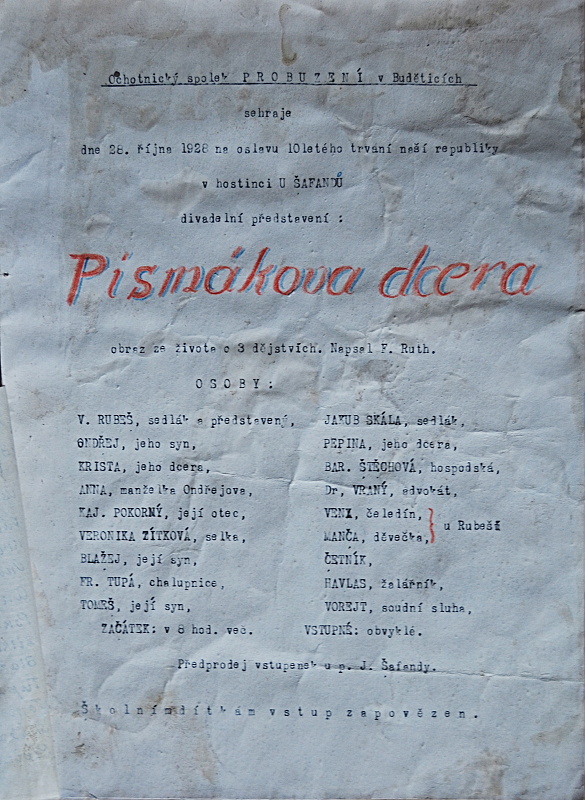 Ochotnický spolek PROBUZENÍ v Buděticích
sehraje
dne 28. října 1928 na oslavu 10letého trvání naší republiky
v hostinci U ŠAFANDŮ
divadelní představení :
Pismákova dcera
obraz ze života o 3 dějstvích. Napsal F. Ruth.
OSOBY:
V. RUBEŠ, sedlák a představený,
ONDŘEJ, jeho syn,
KRISTA, jeho dcera,
ANNA, manželka Ondřejova,
KAJ. POKORNÝ, její otec,
VERONIKA ZÍTKOVÁ, selka,
BLAŽEJ, její syn,
FR. TUPÁ, chalupnice,
TOMEŠ, její syn,
JAKUB SKÁLA, sedlák,
PEPINA, jeho dcera,
BAR. ŠTĚCHOVÁ, hospodská,
Dr, VRANÝ, advokát,
VENI, čeledín,
MANČA, děvečka,
u Rubešů
ČETNÍK,
HAVLAS, žalářník,
VOREJT, soudní sluha,
ZAČÁTEK: v 8 hod. več. VSTUPNÉ: obvyklé.
Předprodej vstupenek u p. J. Šafandy.
Školním dítkám vstup zapovězen.